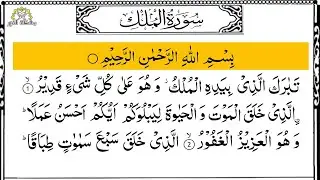 سُوْرَةُ الْمُلْك
بِسْمِ اللّٰهِ الرَّحْمٰنِ الرَّحِيْمِ
تَبٰرَكَ الَّذِىْ بِيَدِهِ الْمُلْكُ وَ هُوَ عَلٰى كُلِّ شَىْءٍ قَدِيْرُ ۙ﴿۱﴾
الَّذِىْ خَلَقَ الْمَوْتَ وَ الْحَيٰوةَ لِيَبْلُوَكُمْ اَيُّكُمْ اَحْسَنُ عَمَلًا ؕ
وَ هُوَ الْعَزِيْزُ الْغَفُوْرُ ۙ﴿۲﴾ الَّذِىْ خَلَقَ سَبْعَ سَمٰوٰتٍ طِبَاقًا ؕ